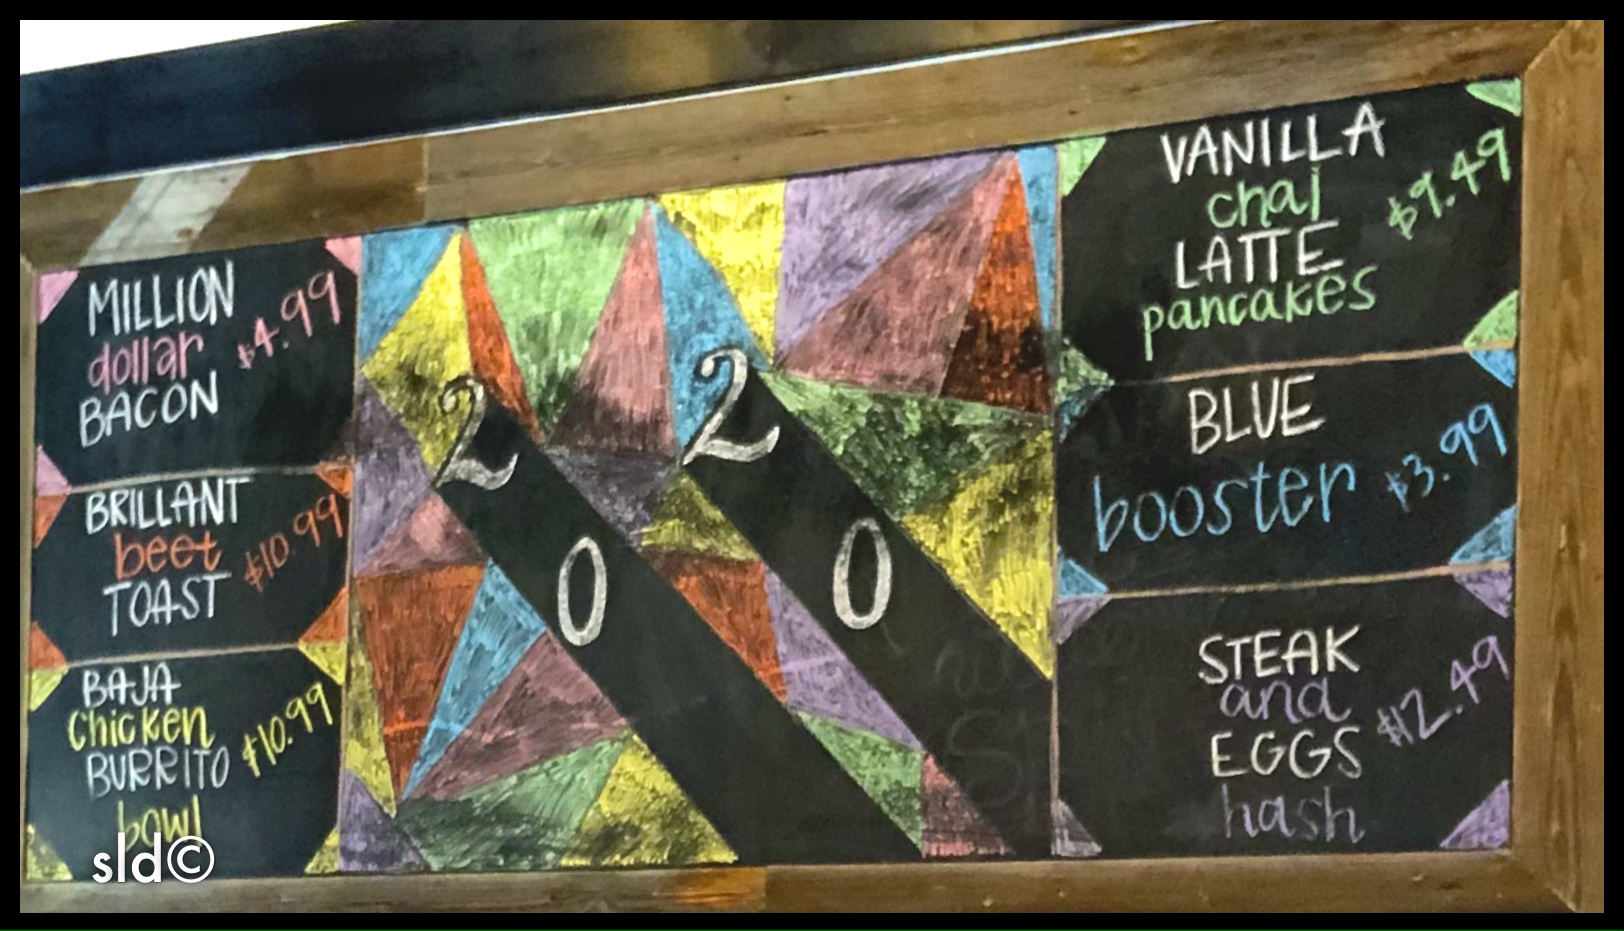 MILLION
dollar
BACON
$4.99
BRILLANT
beet
TOAST
$10.99
BAJA
Chicken
BURRITO
bowl
$10.99
2 2
0 0
VANILLA
chai
LATTE
pancakes
$9.49
BLUE
booster
$3.99
STEAK
and
EGGS
hash
$12.49
sld©